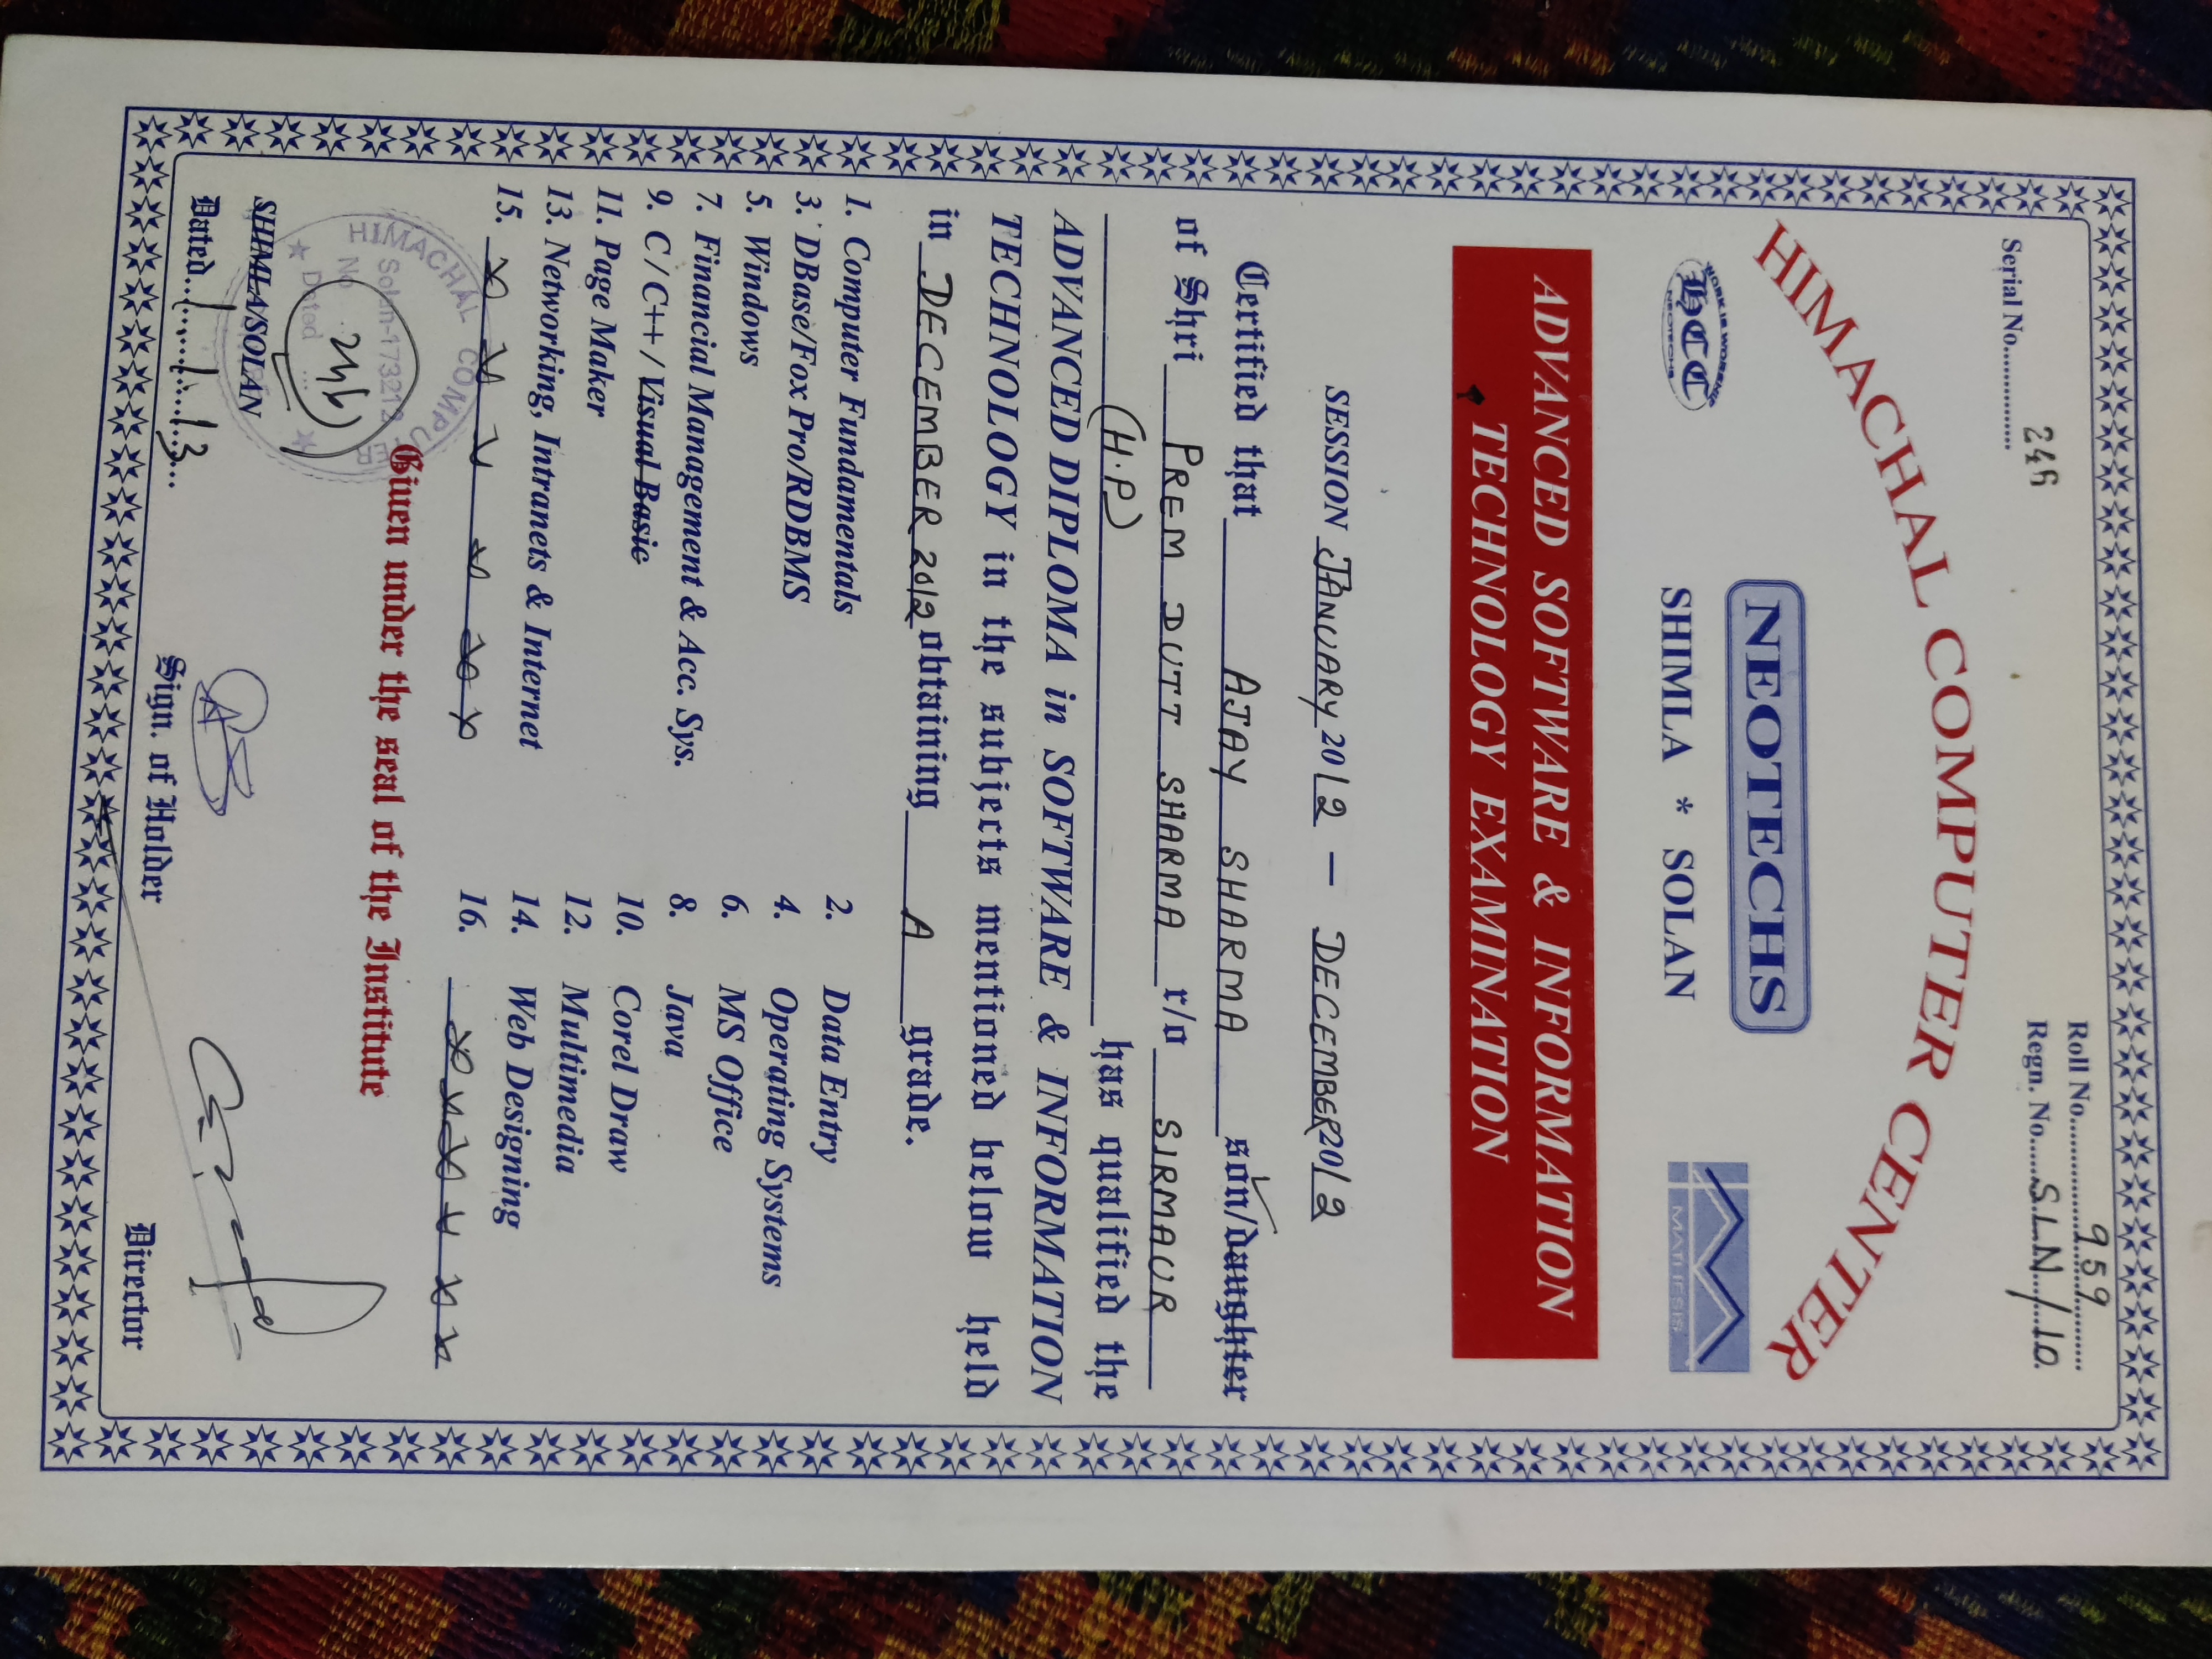 Roll No. 959
Serial No. 246
Regn. No. SLN/10
HIMACHAL COMPUTER CENTER
NEOTECHS
WORK IS WORSHIP
HCC
NEOTECHS
SHIMLA * SOLAN
MATHESIS
ADVANCED SOFTWARE & INFORMATION
TECHNOLOGY EXAMINATION
SESSION JANUARY 2012 — DECEMBER 2012
Certified that AJAY SHARMA son/daughter
of Shri PREM DUTT SHARMA r/o SIRMAUR
(H.P) has qualified the
ADVANCED DIPLOMA in SOFTWARE & INFORMATION
TECHNOLOGY in the subjects mentioned below held
in DECEMBER 2012 obtaining A grade.
1. Computer Fundamentals
2. Data Entry
3. DBase/Fox Pro/RDBMS
4. Operating Systems
5. Windows
6. MS Office
7. Financial Management & Acc. Sys.
8. Java
9. C / C++ / Visual Basic
10. Corel Draw
11. Page Maker
12. Multimedia
13. Networking, Intranets & Internet
14. Web Designing
15.
16.
HIMACHAL COMPUTER
Solan-173212
No 246
Dated ...
Given under the seal of the Institute
SHIMLA/SOLAN
Dated 1.1.13
Sign. of Holder
Director